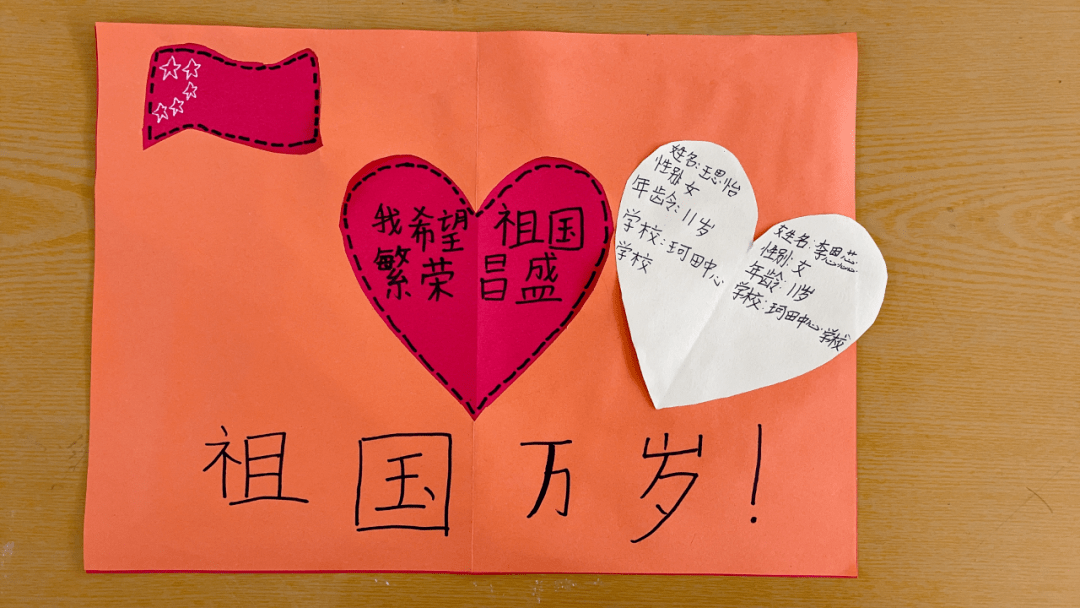 我希望 祖国
繁荣 昌盛
姓名:王思怡
性别 女
年龄:11岁
学校:珂田中心
学校
姓名:李思芯
性别:女
年龄:11岁
学校:珂田中心学校
祖国万岁!